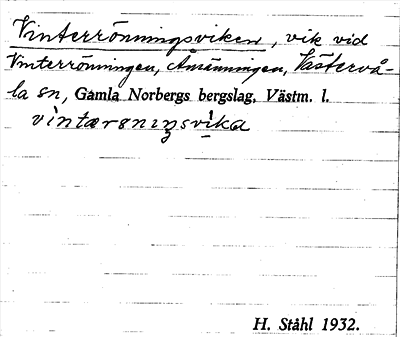 Vinterrönningsviken, vik vid
Vinterrönningen, Åmänningen, Västervå-
la sn, Gamla Norbergs bergslag, Västm. l.
vintærønıŋsvika
H. Ståhl 1932.